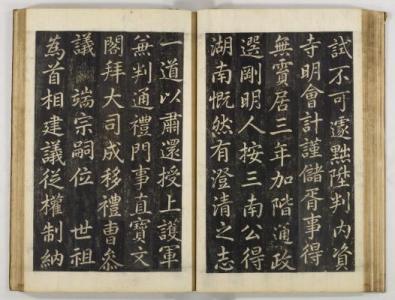 試不可遽黜陞判內資
寺明會計謹儲胥事得
無竇居三年加階通政
選剛明人按三南公得
湖南慨然有澄清之志
一道以肅還授上護軍
兼判通禮門事直寶文
閣拜大司成移禮曹參
議　端宗嗣位　世祖
為首相建議從權制納